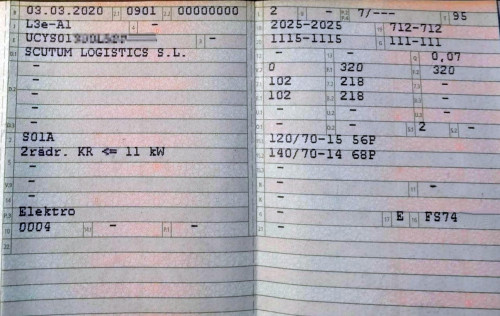 03.03.2020 0901 00000000
L3e-A1 -
UCYS01 -
SCUTUM LOGISTICS S.L.
-
-
-
-
-
S01A
2rädr. KR <= 11 kW
-
-
-
Elektro
0004 - -
2 - 7/--- 95
2025-2025 712-712
1115-1115 111-111
- - 0,07
0 320 320
102 218 -
102 218 -
- - -
- - 2 -
120/70-15 56P
140/70-14 68P
-
-
- -
-
- E FS74
-